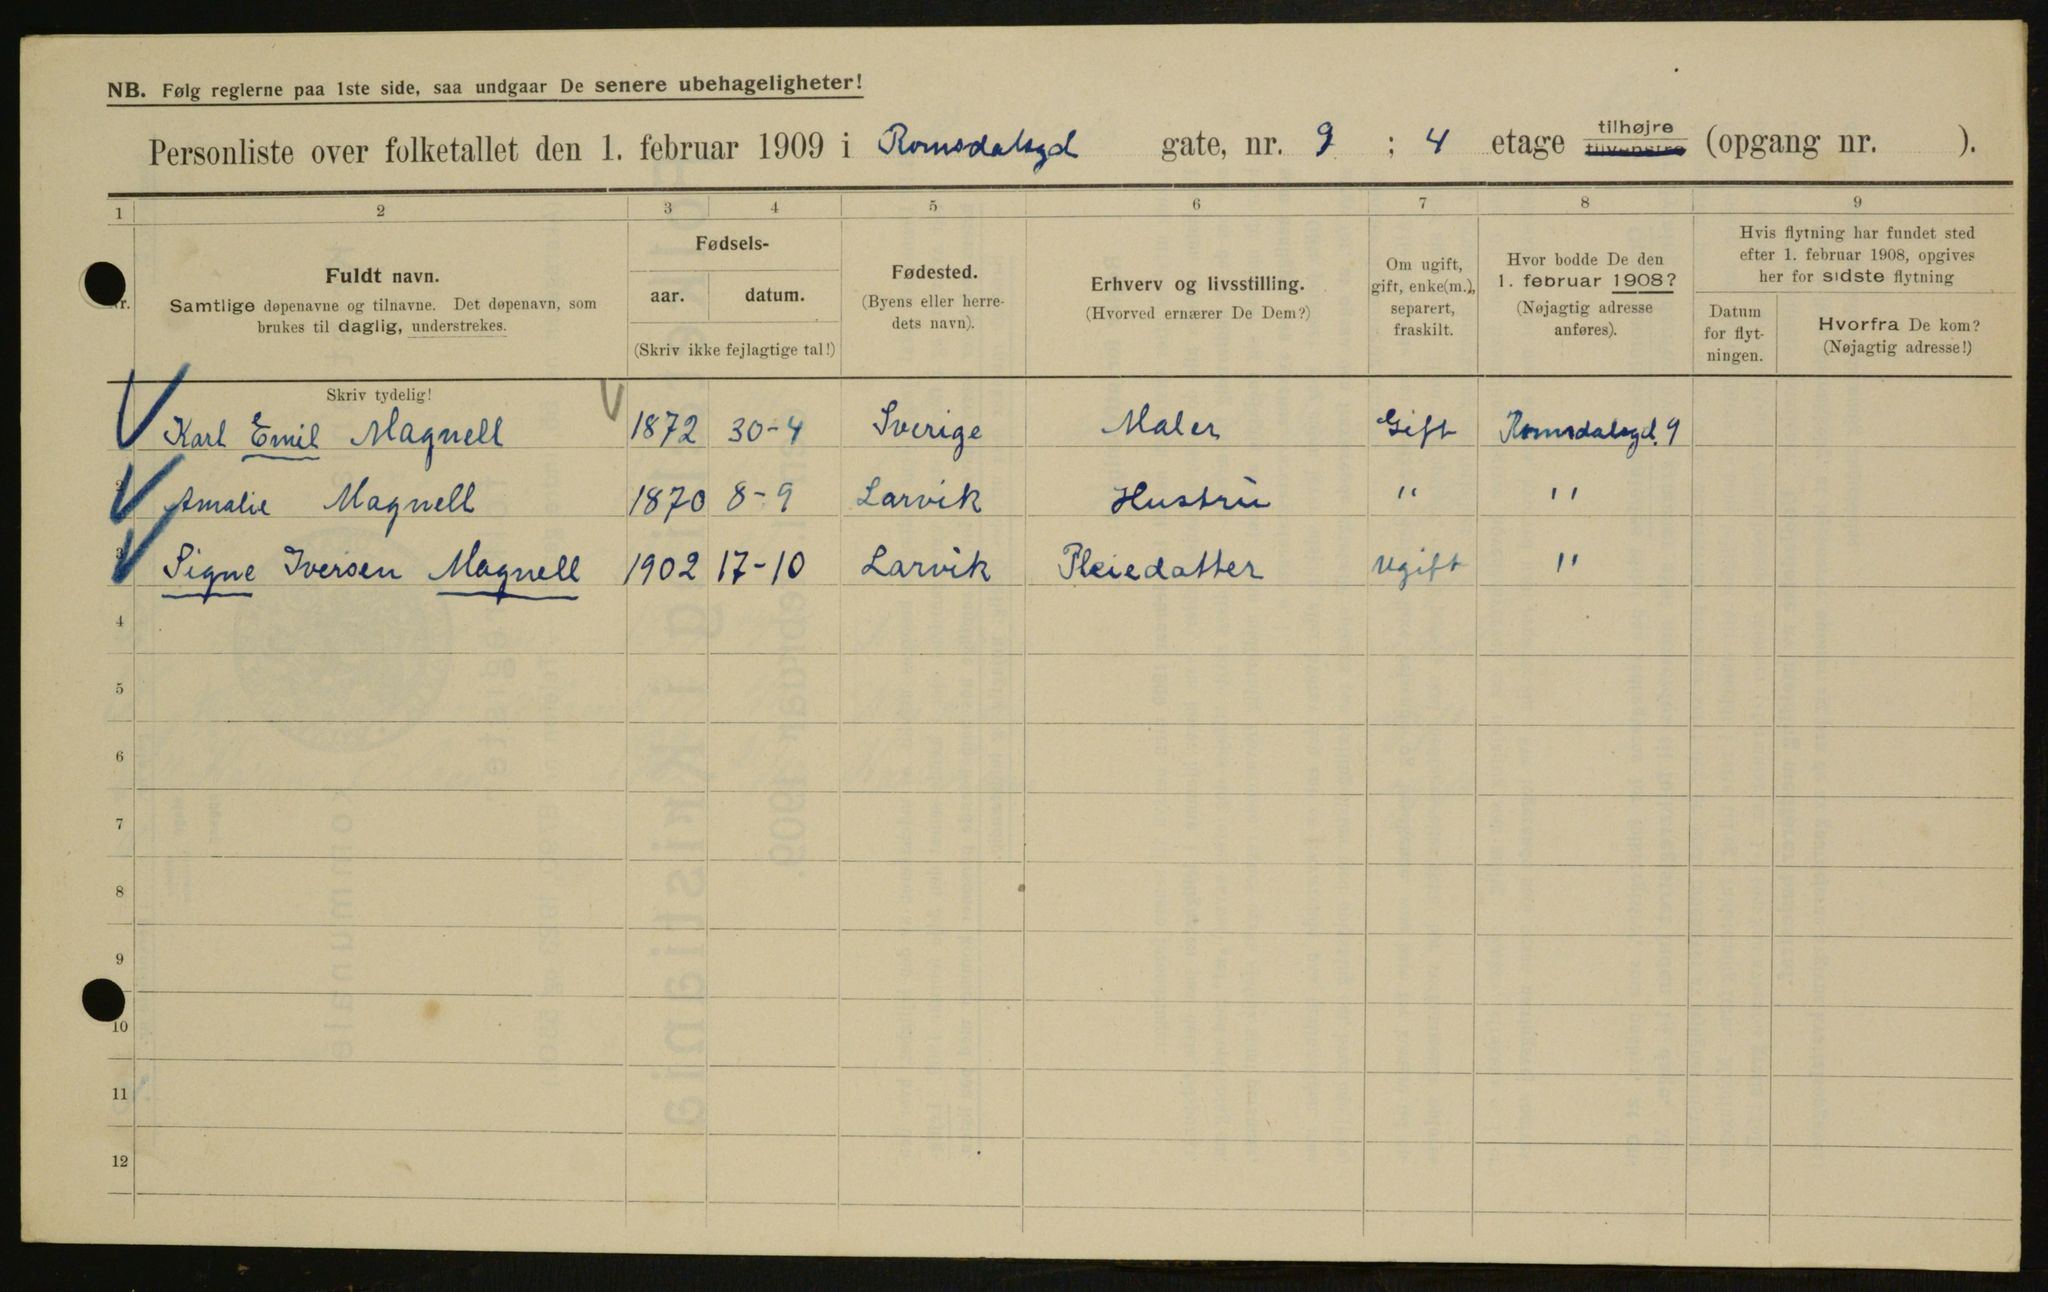 NB. Følg reglerne paa 1ste side, saa undgaar De senere ubehageligheter!
Personliste over folketallet den 1. februar 1909 i Romsdalsgd gate, nr. 9 ; 4 etage tilhøjre tilvenstre (opgang nr. ).
1 2 3 4 5 6 7 8 9
Nr.
Fuldt navn.
Samtlige døpenavne og tilnavne. Det døpenavn, som
brukes til daglig, understrekes.
Fødsels-
aar. datum.
(Skriv ikke fejlagtige tal!)
Fødested.
(Byens eller herre-
dets navn).
Erhverv og livsstilling.
(Hvorved ernærer De Dem?)
Om ugift,
gift, enke(m.),
separert,
fraskilt.
Hvor bodde De den
1. februar 1908?
(Nøjagtig adresse
anføres).
Hvis flytning har fundet sted
efter 1. februar 1908, opgives
her for sidste flytning
Datum
for flyt-
ningen.
Hvorfra De kom?
(Nøjagtig adresse!)
Skriv tydelig!
Karl Emil Magnell 1872 30-4 Sverige Maler Gift Romsdalsgd. 9
2 Amalie Magnell 1870 8-9 Larvik Hustru " "
3 Signe Iversen Magnell 1902 17-10 Larvik Pleiedatter Ugift "
4
5
6
7
8
9
10
11
12